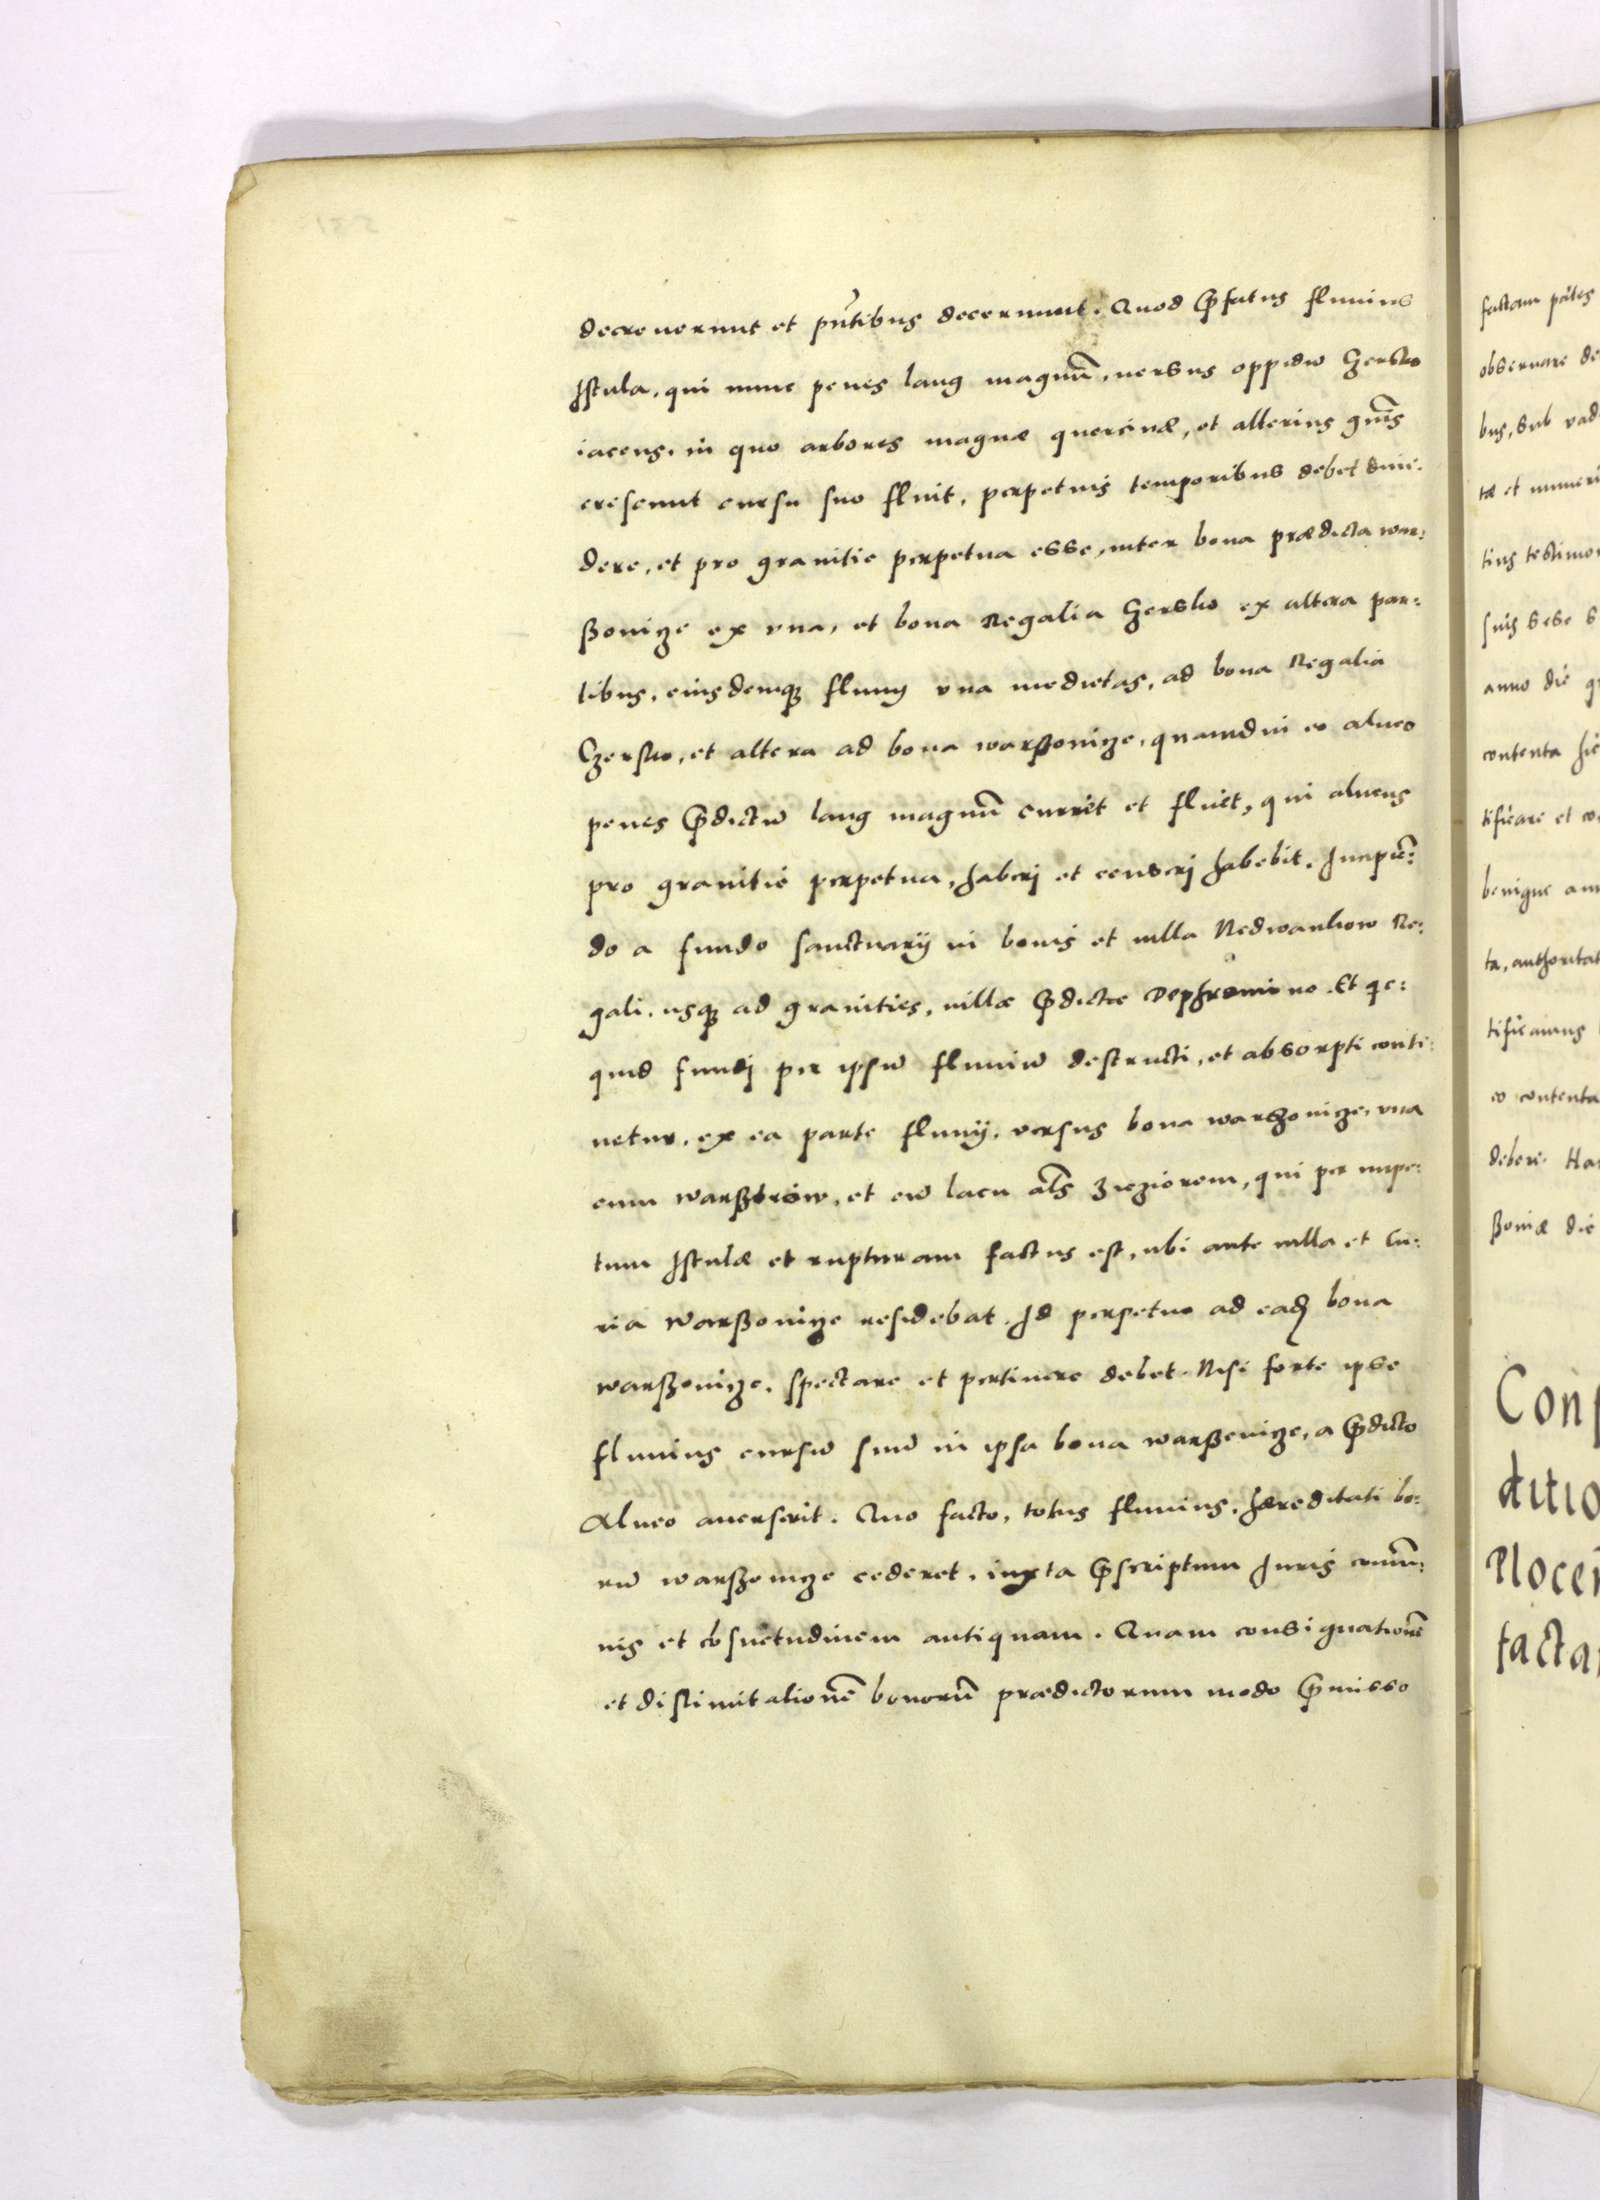 decreuerunt et pñtibus decernunt. Quod p̃fatus fluuius
Istula, qui nunc penes laug magnũ, uersus oppidũ Czersko
iacens, in quo arbores magnæ quercinæ, et alterius gñis
crescunt cursu suo fluit, perpetuis temporibus debet diui-
dere, et pro granitie perpetua esse, inter bona prædicta War-
ßouicze ex una, et bona Regalia Czersko ex altera par-
tibus, eiusdemq₃ fluuij una medietas, ad bona Regalia
Czersko, et altera ad bona Warßouicze, quamdiu eo alueo
penes p̃dictũ laug magnũ curret et fluet, qui alueus
pro granitie perpetua, haberj et censerj habebit. Incipiẽ-
do a fundo sanctuarij in bonis et uilla Nedwankow Re-
gali, usq₃ ad granities, uillæ p̃dictæ Dephremino. Et qc-
quid fundj per ipsũ fluuiũ destructi, et absorpti conti-
netur, ex ea parte fluuij, uersus bona Warszouicze, una
cum Warßbrow, et cũ lacu als̃ Zieziorem, qui per impe-
tum Istulæ et rupturam factus est, ubi ante uilla et Cu-
ria Warßouicze residebat. Id perpetuo ad eadẽ bona
Warßouicze, spectare et pertinere debet. Nisi forte ipse
fluuius cursũ suũ in ipsa bona Warßouicze, a p̃dicto
Alueo auerserit. Quo facto, totus fluuius, hæreditati bo-
rũ Warßouicze cederet, iuxta p̃scriptum Iuris comũ-
nis et cõsuetudinem antiquam. Quam consignationẽ
et dislimitationẽ bonorũ prædictorum modo p̃misso
factam
obseruare de
bus, sub vad
tæ et muneri
tius testimon
suis sese s
anno die q
contenta hic
tificare et co
benigne ann
ta, authoritat
tificauimus
eo contenta
debere. Har
ßouiæ die
Cons
ditio
Plocen
facta